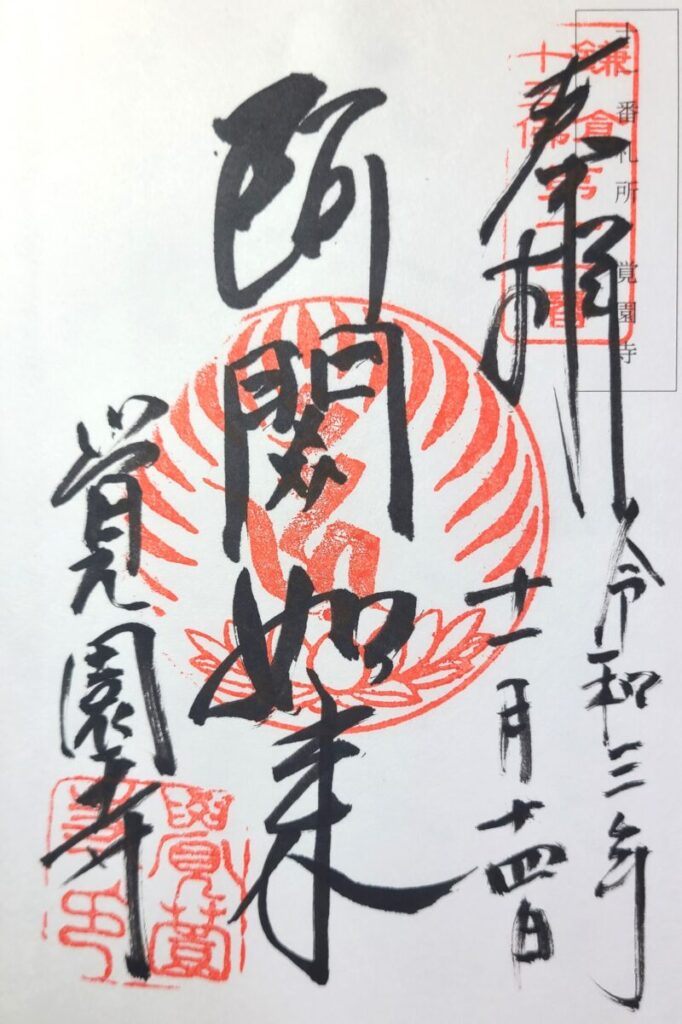 十一番札所 覚園寺
鎌倉
十三佛
第十一番
奉拝
令和三年
十一月十四日
阿閦如来
覚園寺
覺薗
寺印